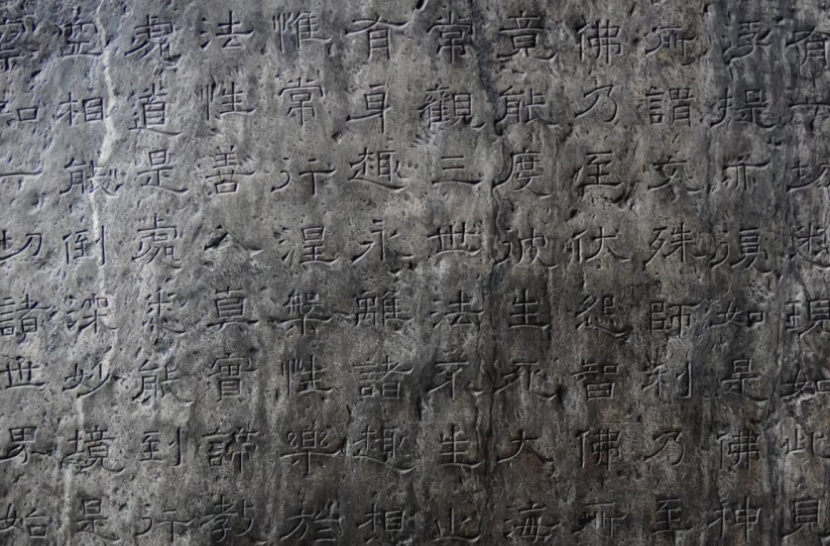 有一切悉現如此見
浮提亦復如是佛神
所謂文殊師利乃至
佛乃至伏怨智佛亦
竟能度彼生死大海
常觀三世法不生止
有身趣永離諸趣相
惟常行涅槃性樂於
法性善入真實諦教
道是處悉能到行
空相能倒深妙境是
知一切諸世界始